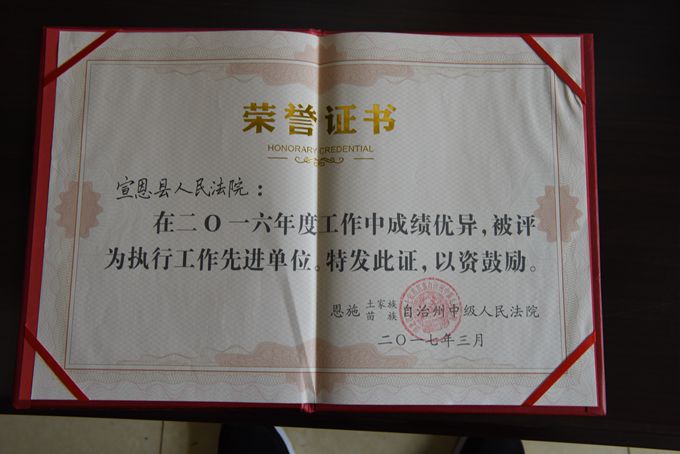 荣誉证书
HONORARY CREDENTIAL
宣恩县人民法院：
在二〇一六年度工作中成绩优异，被评
为执行工作先进单位。特发此证，以资鼓励。
恩施土家族苗族自治州中级人民法院
二〇一七年三月